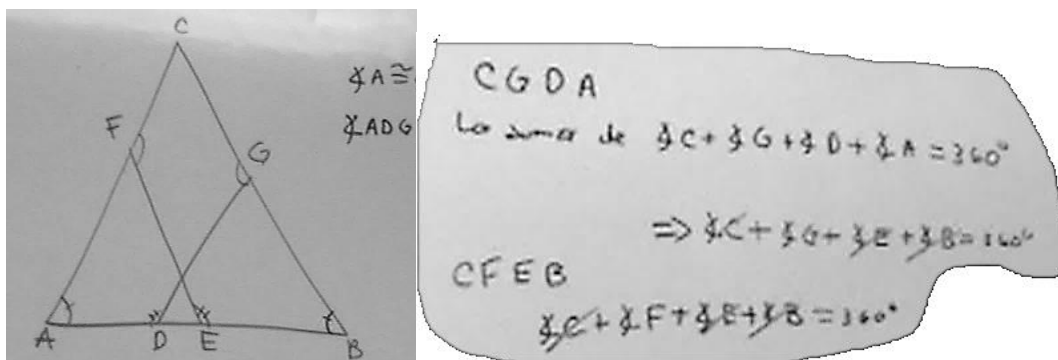 C
F
G
A
D
E
B
∡A≅
∡ADG
CGDA
La suma de ∡C+∡G+∡D+∡A=360°
=> ∡C+∡G+∡E+∡B=360°
CFEB
∡C+∡F+∡E+∡B=360°